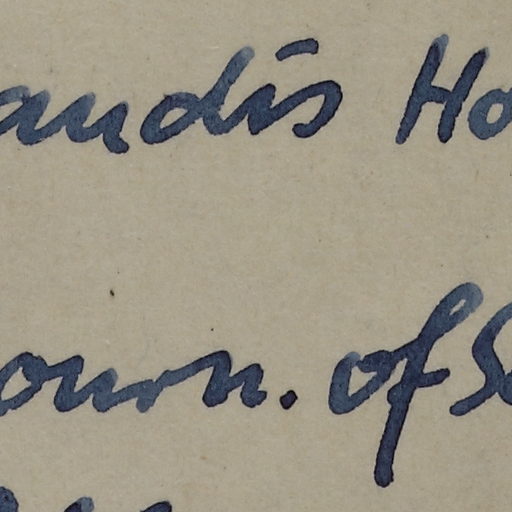 andis Ho
ourn. of S